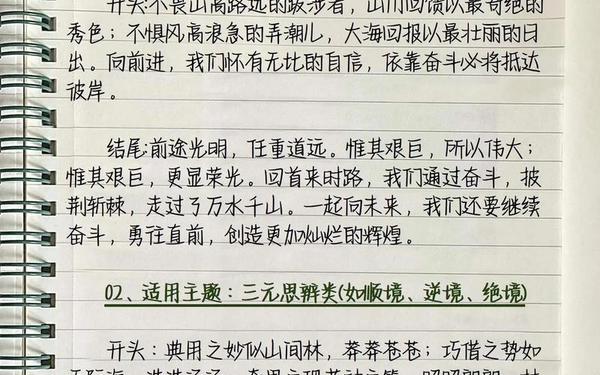 开头:不畏山高路远的跋涉者，山川回馈以最奇绝的
秀色；不惧风高浪急的弄潮儿，大海回报以最壮丽的日
出。向前进，我们怀有无比的自信，依靠奋斗必将抵达
彼岸。
结尾:前途光明，任重道远。惟其艰巨，所以伟大；
惟其艰巨，更显荣光。回首来时路，我们通过奋斗，披
荆斩棘，走过了万水千山。一起向未来，我们还要继续
奋斗，勇往直前，创造更加灿烂的辉煌。
02、适用主题：三元思辨类(如顺境、逆境、绝境)
开头：典用之妙似山间林，莽莽苍苍；巧借之势如